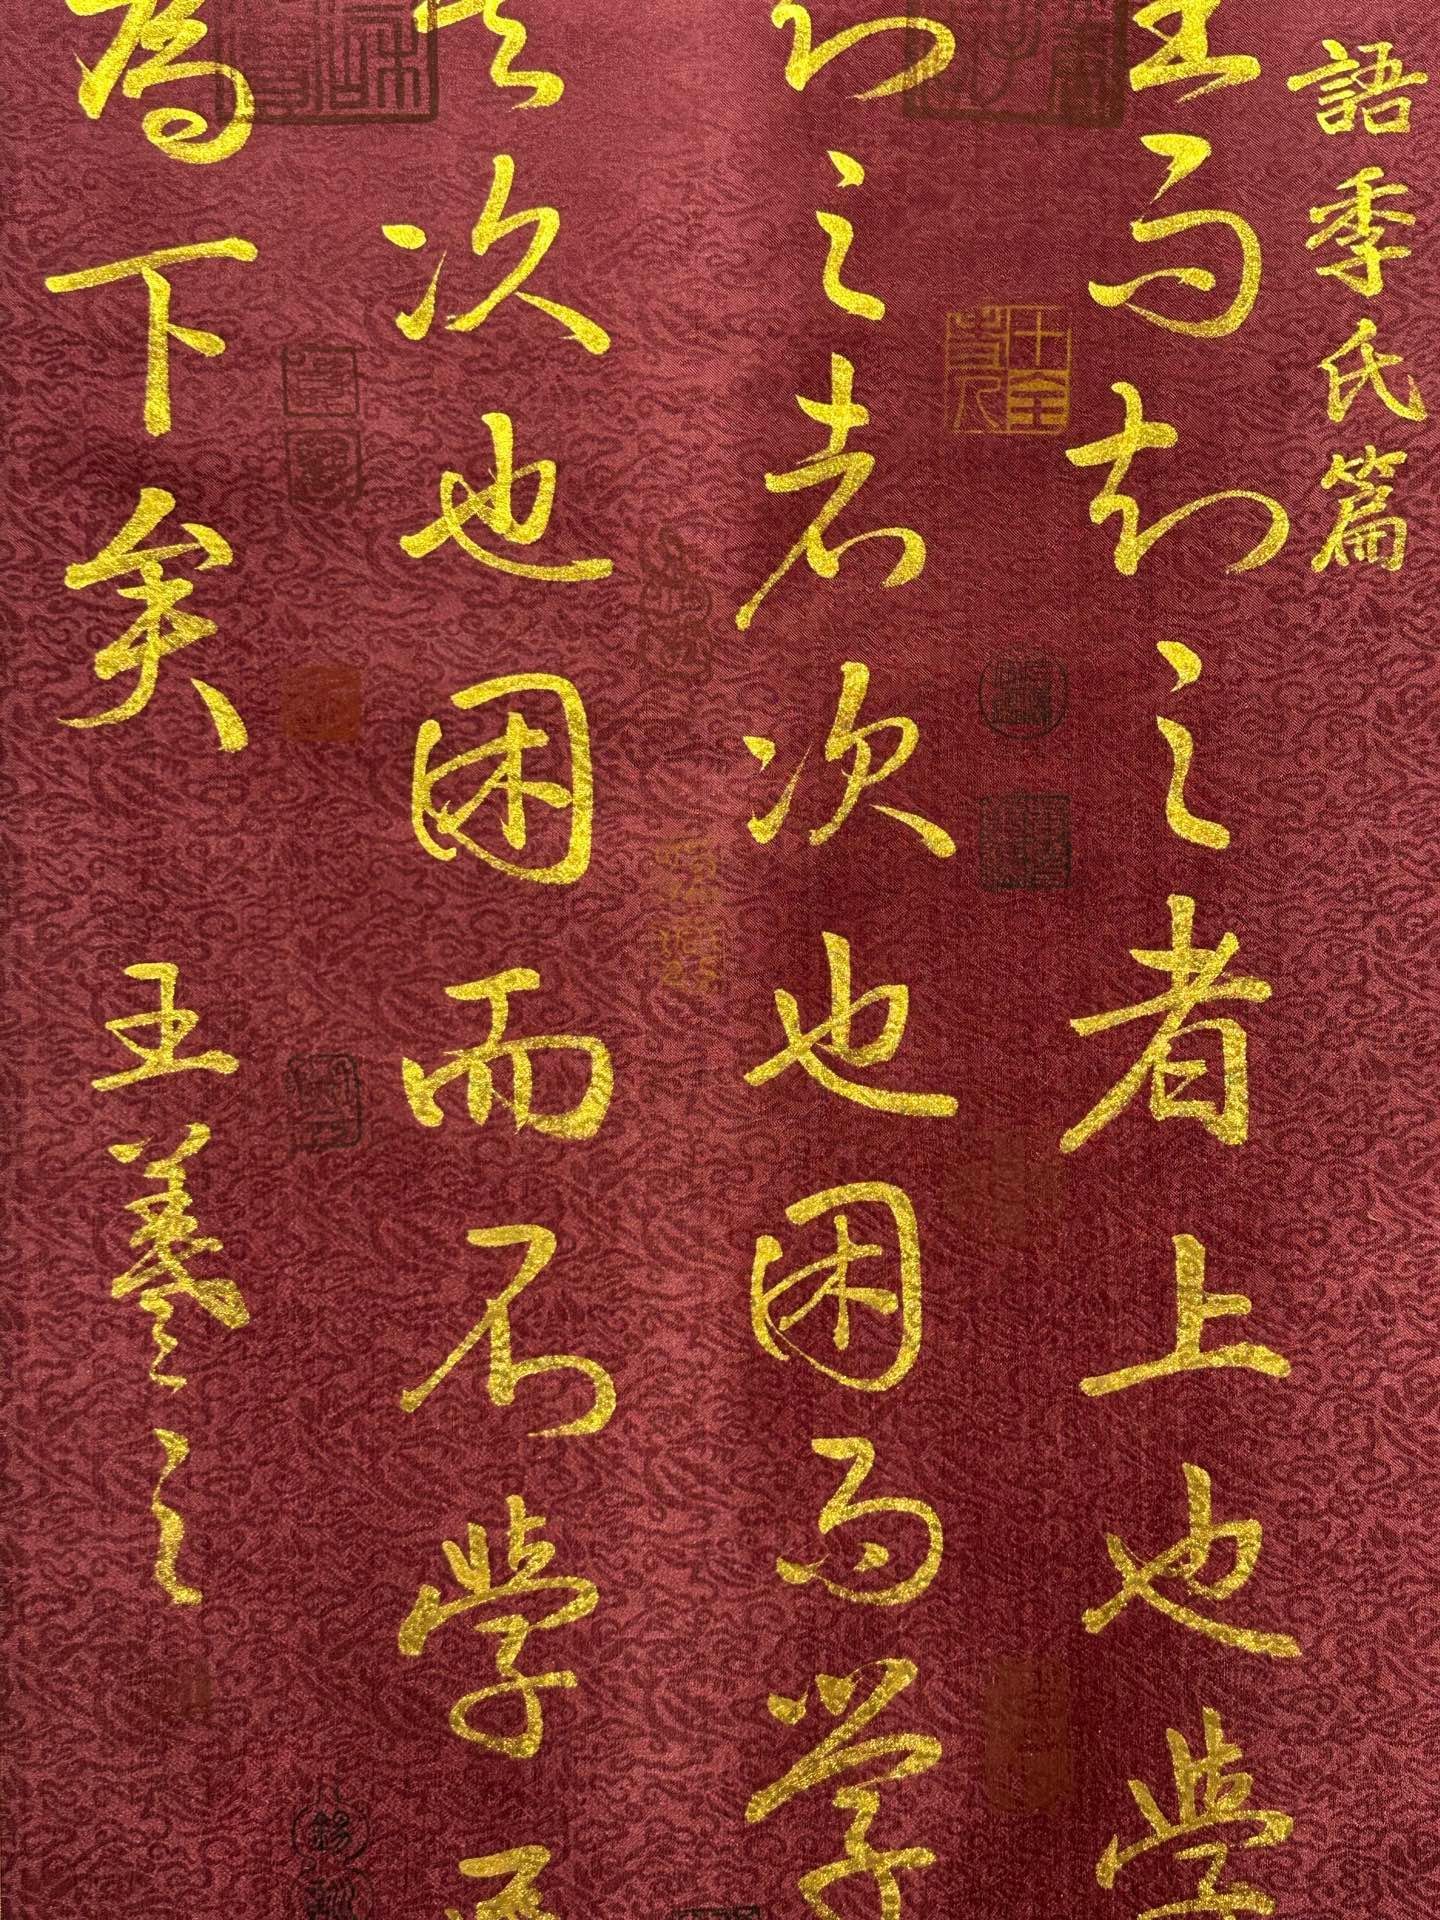 語季氏篇
生而知之者上也學
知之者次也困而學
其次也困而不學
為下矣 王羲之
十全老人